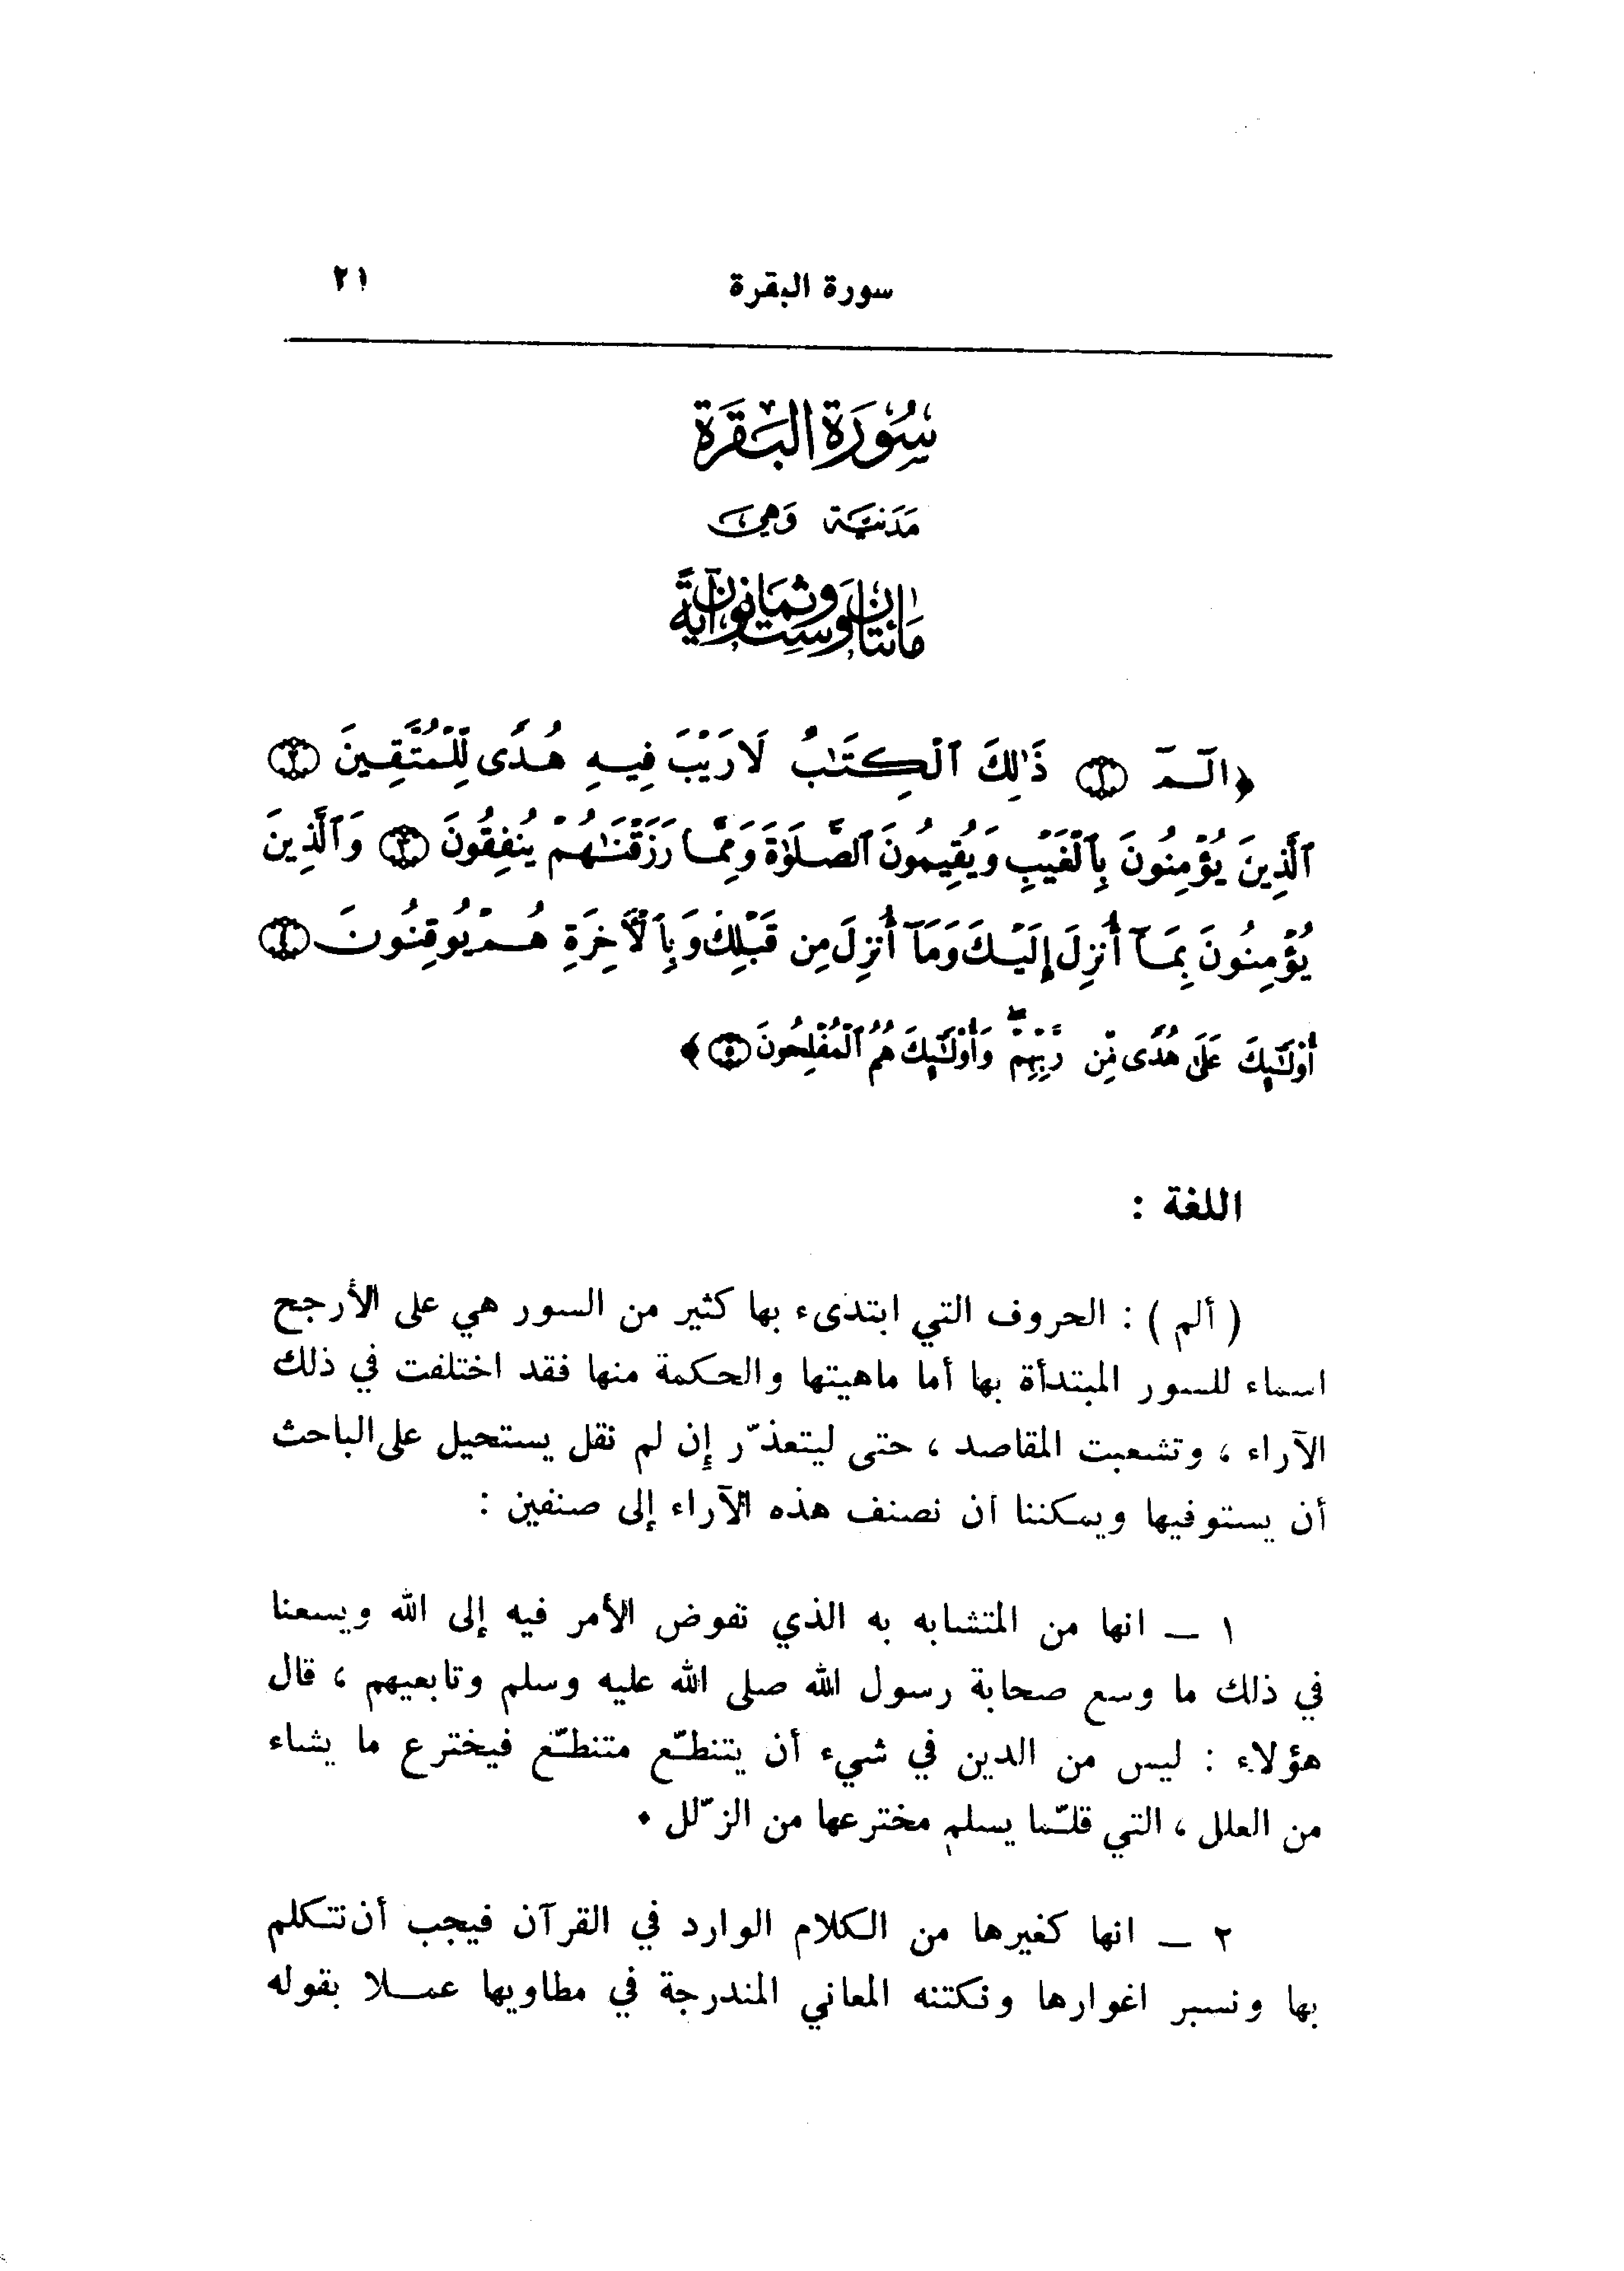 سورة البقرة ٢١
سُورَة البَقَرَة
مَدَنيَّة وَهيَ
مائتان وست وثمانون آية
﴿الٓمٓ ١ ذَٰلِكَ ٱلْكِتَٰبُ لَا رَيْبَ فِيهِ هُدًى لِّلْمُتَّقِينَ ٢
ٱلَّذِينَ يُؤْمِنُونَ بِٱلْغَيْبِ وَيُقِيمُونَ ٱلصَّلَوٰةَ وَمِمَّا رَزَقْنَٰهُمْ يُنفِقُونَ ٣ وَٱلَّذِينَ
يُؤْمِنُونَ بِمَآ أُنزِلَ إِلَيْكَ وَمَآ أُنزِلَ مِن قَبْلِكَ وَبِٱلْأَخِرَةِ هُمْ يُوقِنُونَ ٤
أُوْلَٰٓئِكَ عَلَىٰ هُدًى مِّن رَّبِّهِمْۖ وَأُوْلَٰٓئِكَ هُمُ ٱلْمُفْلِحُونَ ٥﴾
اللغة :
( ألم ) : الحروف التي ابتدىء بها كثير من السور هي على الأرجح
اسماء للسور المبتدأة بها أما ماهيتها والحكمة منها فقد اختلفت في ذلك
الآراء ، وتشعبت المقاصد ، حتى ليتعذّر إن لم نقل يستحيل على الباحث
أن يستوفيها ويمكننا ان نصنف هذه الآراء إلى صنفين :
١ ــ انها من المتشابه به الذي نفوض الأمر فيه إلى الله ويسعنا
في ذلك ما وسع صحابة رسول الله صلى الله عليه وسلم وتابعيهم ، قال
هؤلاء : ليس من الدين في شيء أن يتنطّع متنطّع فيخترع ما يشاء
من العلل ، التي قلّما يسلم مخترعها من الزّلل ٠
٢ ــ انها كغيرها من الكلام الوارد في القرآن فيجب أن نتكلم
بها ونسبر اغوارها ونكتنه المعاني المندرجة في مطاويها عمــلا بقوله